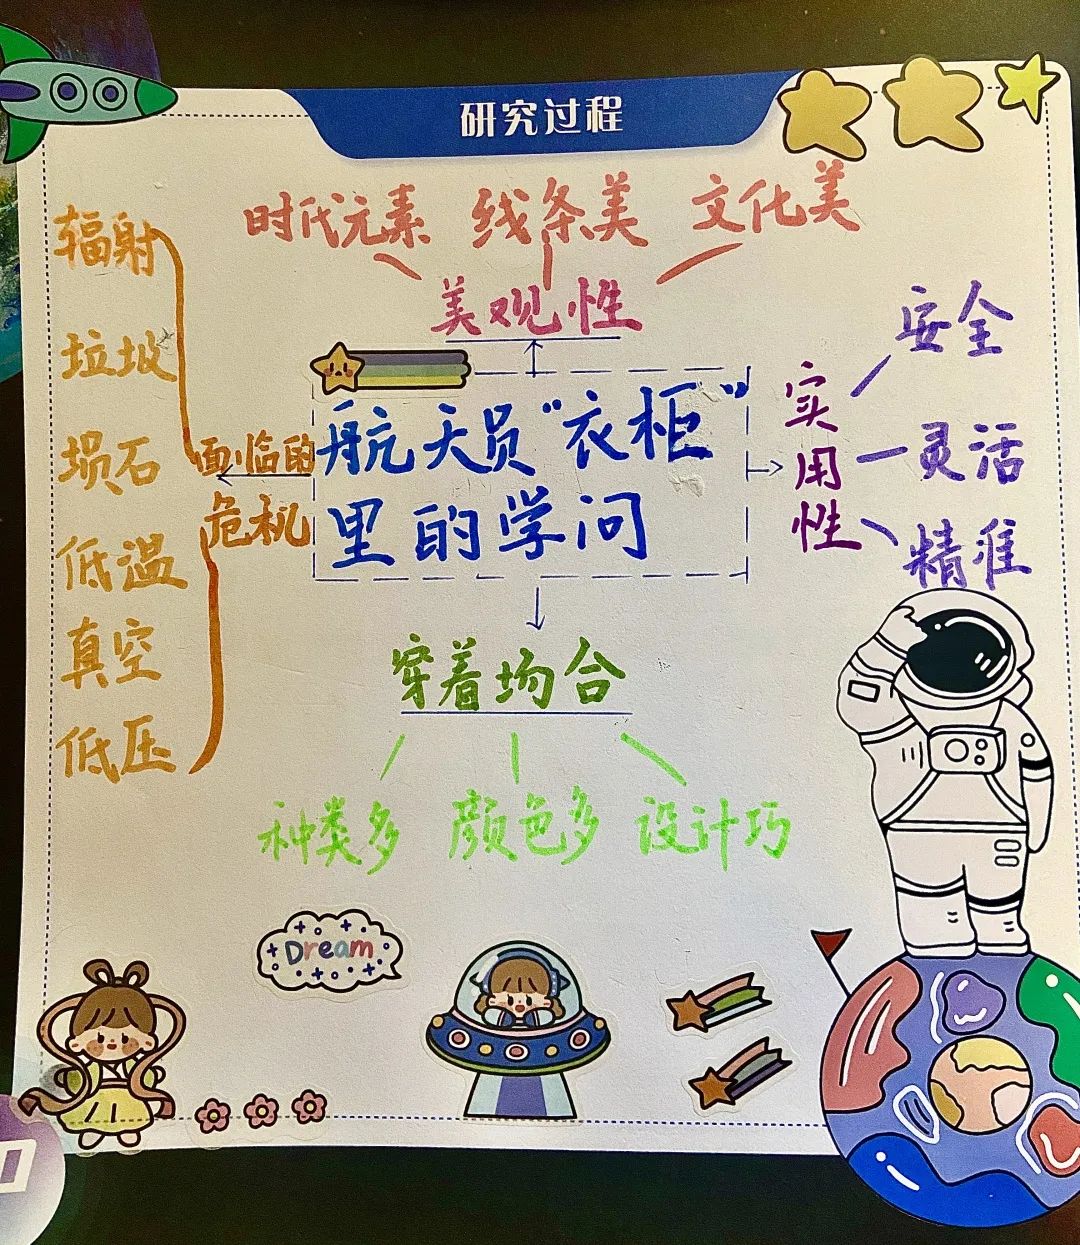 研究过程
时代元素 线条美 文化美
美观性
辐射
垃圾
陨石
低温
真空
低压
面临的
危机
航天员“衣柜”
里的学问
实用性
安全
灵活
精准
穿着场合
种类多 颜色多 设计巧
Dream